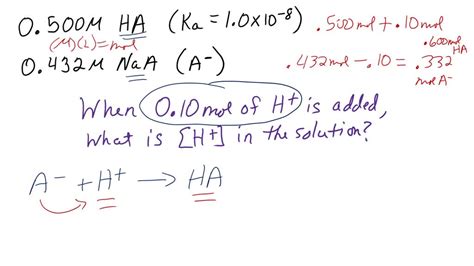 0.500M HA (Ka = 1.0x10⁻⁸) .500mol + .10mol
(M)(L) = mol .600mol HA
0.432M NaA (A⁻) .432mol - .10 = .332 mol A⁻
When 0.10mol of H⁺ is added,
what is [H⁺] in the solution?
A⁻ + H⁺ → HA